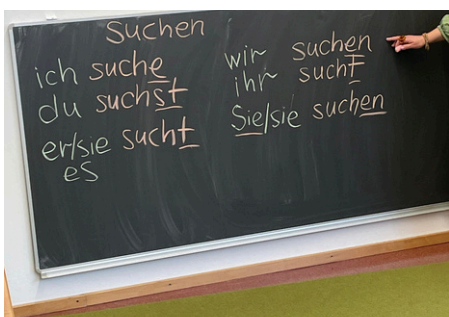 suchen
ich suche
du suchst
er/sie sucht
es
wir suchen
ihr sucht
Sie/sie suchen